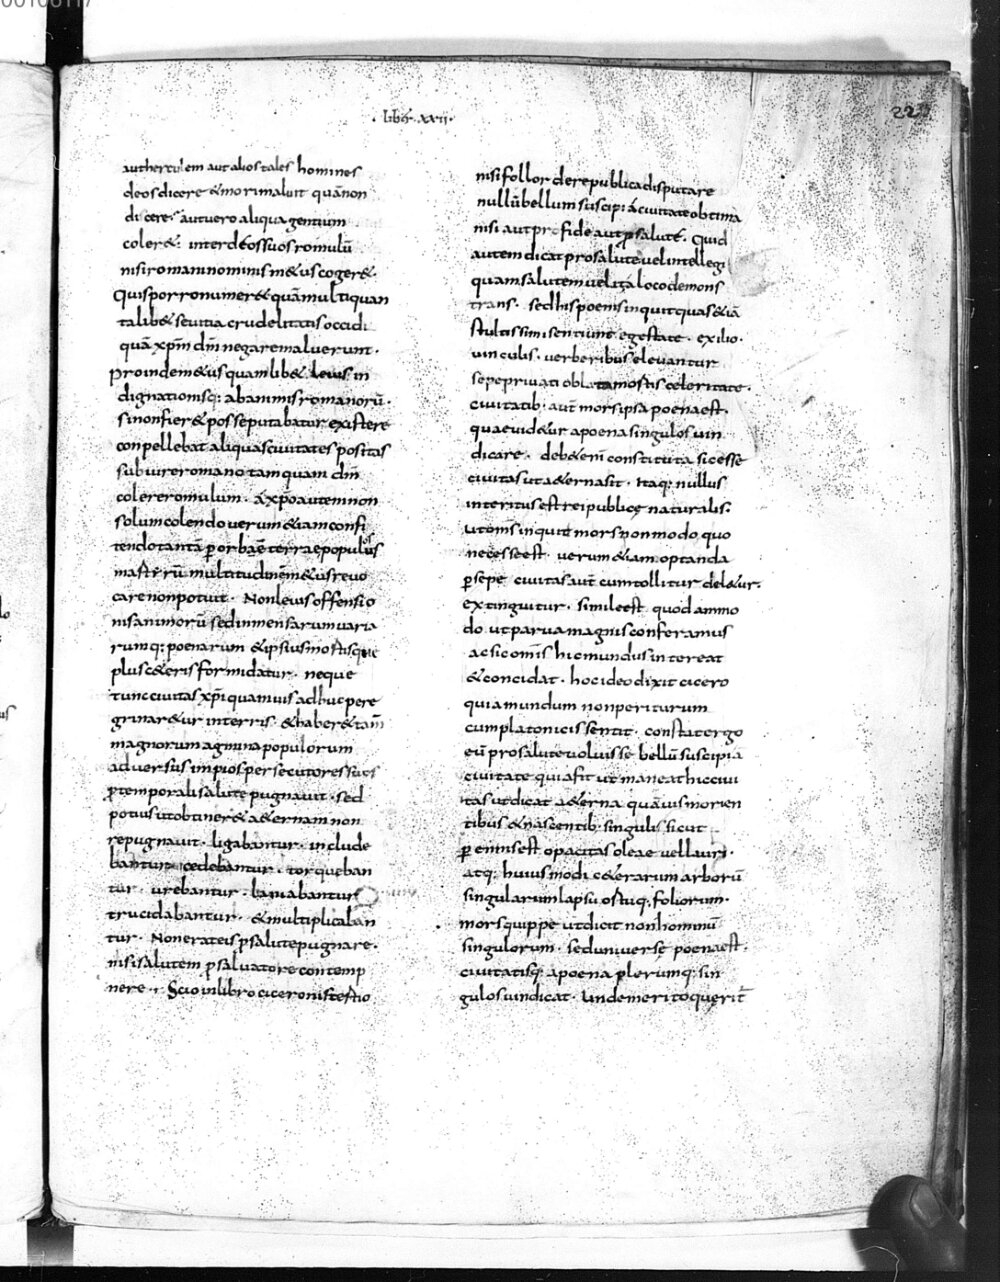 00106117
· liber · xxii ·
222
aut herculem aut alios tales homines
deos dicere & mori maluit quā non
dicere · aut uero aliqua gentium
coler&: inter deos suos romulū
nisi romani nominis m&us coger&·
Quis porro numer& quā multi quan
talib& seuitia crudelitatis occidi
quā xp̄m dm̄ negare maluerunt·
Proinde m&us quamlib& leuis in
dignationisq: ab animis romanorū·
si non fier& posse putabatur existere
conpellebat aliquas ciuitates positas
sub iure romano tam quam dm̄
colere romulum · A xp̄o autem non
solum colendo uerum &iam confi
tendo tantā ꝑ orbāe terrae populos
martirū multitudinēm &us reuo
care non potuit · Non leuis offensio
nis animorū sed inmensarum uaria
rumq: poenarum & ipsius mortisque
plus c&eris formidatur · neque
tunc ciuitas xp̄i quamuis adhuc pere
grinar&ur in terris · & haber& tam̄
magnorum agmina populorum
aduersus impios persecutores suos
ꝓ temporali salute pugnauit · sed
potius ut obtiner& a&ernam non
repugnauit · ligabantur · include
bantur · cedebantur · torqueban
tur · urebantur · laniabantur
trucidabantur · & multiplicaban
tur · Non erat eis ꝓ salute pugnare·
nisi salutem ꝓ saluatore contemp
nere · Scio in libro ciceronis tertio
nisi fallor de re publica disputare
nullū bellum suscipi a ciuitate obtima
nisi aut pro fide aut ꝓ salute · Quid
autem dicat pro salute uel intellegi
quam salutem uelit alio loco demons
trans · sed his poenis inquit quas &iā
stultissimi sentiunt egestate · exilio·
uinculis · uerberibus elevantur
sepe priuati oblata mortis celeritate·
ciuitatib: aūt mors ipsa poena est·
quae uid&ur a poena singulos uin
dicare · deb& enī constituta sic esse
ciuitas ut a&erna sit · Itaq: nullus
interitus est rei publicę naturalis·
ut oms̄ inquit mors non modo quo
necesse est · uerum &iam optanda
ꝑsepe ciuitas aūt cum tollitur del&ur·
extinguitur · simile est quodammo
do ut parua magnis conferamus
ac si com̄is hic mundus intereat
& concidat · hoc ideo dixit cicero
quia mundum non periturum
cum platonicis sentit · constat ergo
eū pro salute uoluisse bellū suscipi a
ciuitate qua fit ut maneat hic ciui
tas ut dicat a&erna quāuis morien
tibus & nascentib: singulis sicut
ꝑennis est opacitas oleae uel lauri·
atq: huius modi c&erarum arborū
singularum lapsu ortuq: foliorum·
mors quippe ut dicit non hominū
singulorum · sed uniuersę poena est·
ciuitatis q; a poena plerumq: sin
gulos uindicat · Unde merito querit̄